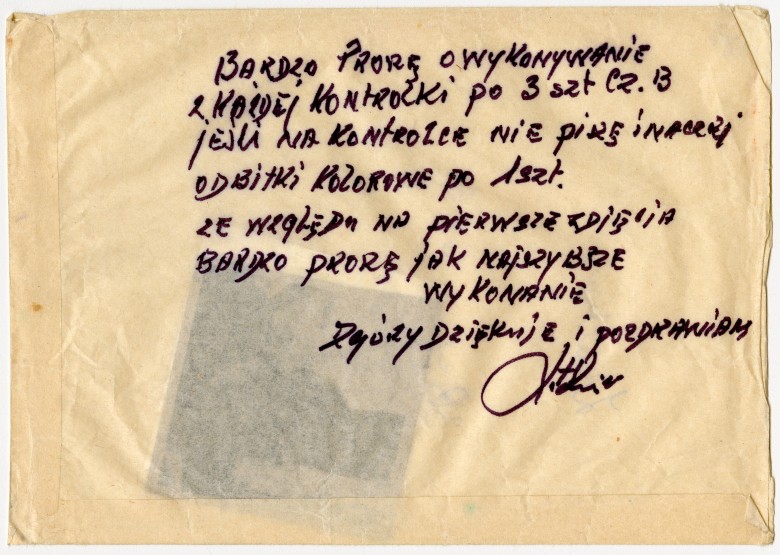 BARDZO PROSZĘ O WYKONYWANIE
Z KAŻDEJ KONTROLKI PO 3 SZT CZ. B
JEŚLI NA KONTROLCE NIE PISZĘ INACZEJ
ODBITKI KOLOROWE PO 1 SZT.
ZE WZGLĘDU NA PIERWSZE ZDJĘCIA
BARDZO PROSZĘ JAK NAJSZYBSZE
WYKONANIE
Z GÓRY DZIĘKUJĘ I POZDRAWIAM